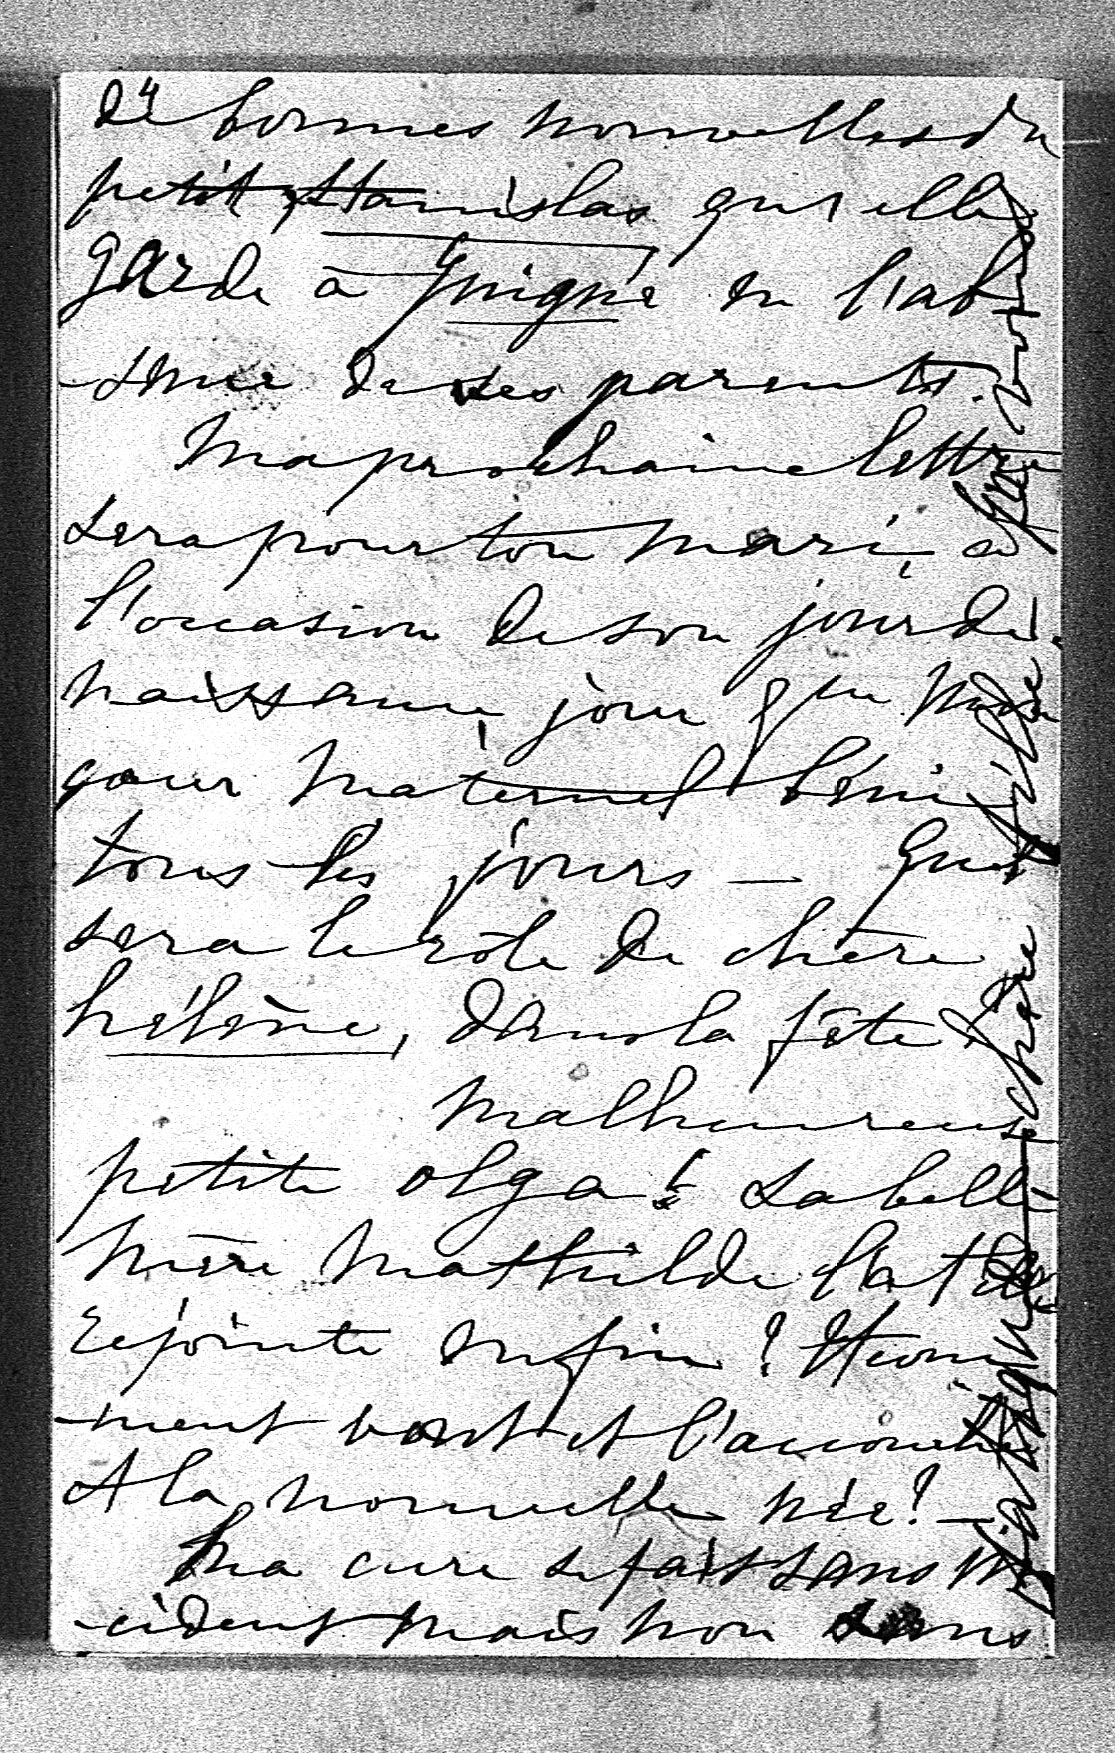 de bonnes nouvelles du
petit Stanislas qu'elle
garde à Guigné en l'ab
-sence de ses parents.
Ma prochaine lettre
sera pour ton mari, à
l'occasion de son jour de
naissance, jour que mon
cœur maternel bénit
tous les jours — Quel
sera le rôle de chère
hélène, dans la fête ?
Malheureuse
petite olga ! Sa belle
mère Mathilde l'a t elle
rejointe enfin ? & com
-ment vont et l'accouchée
& la nouvelle née ! —
Ma cure se fait sans in
-cident mais non sans
fatigue chère fille